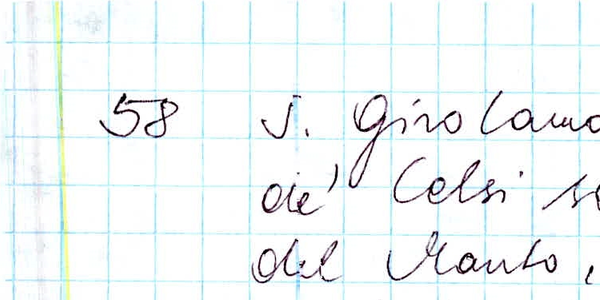 58 S. Girolamo
de' Celsi
del Manto,